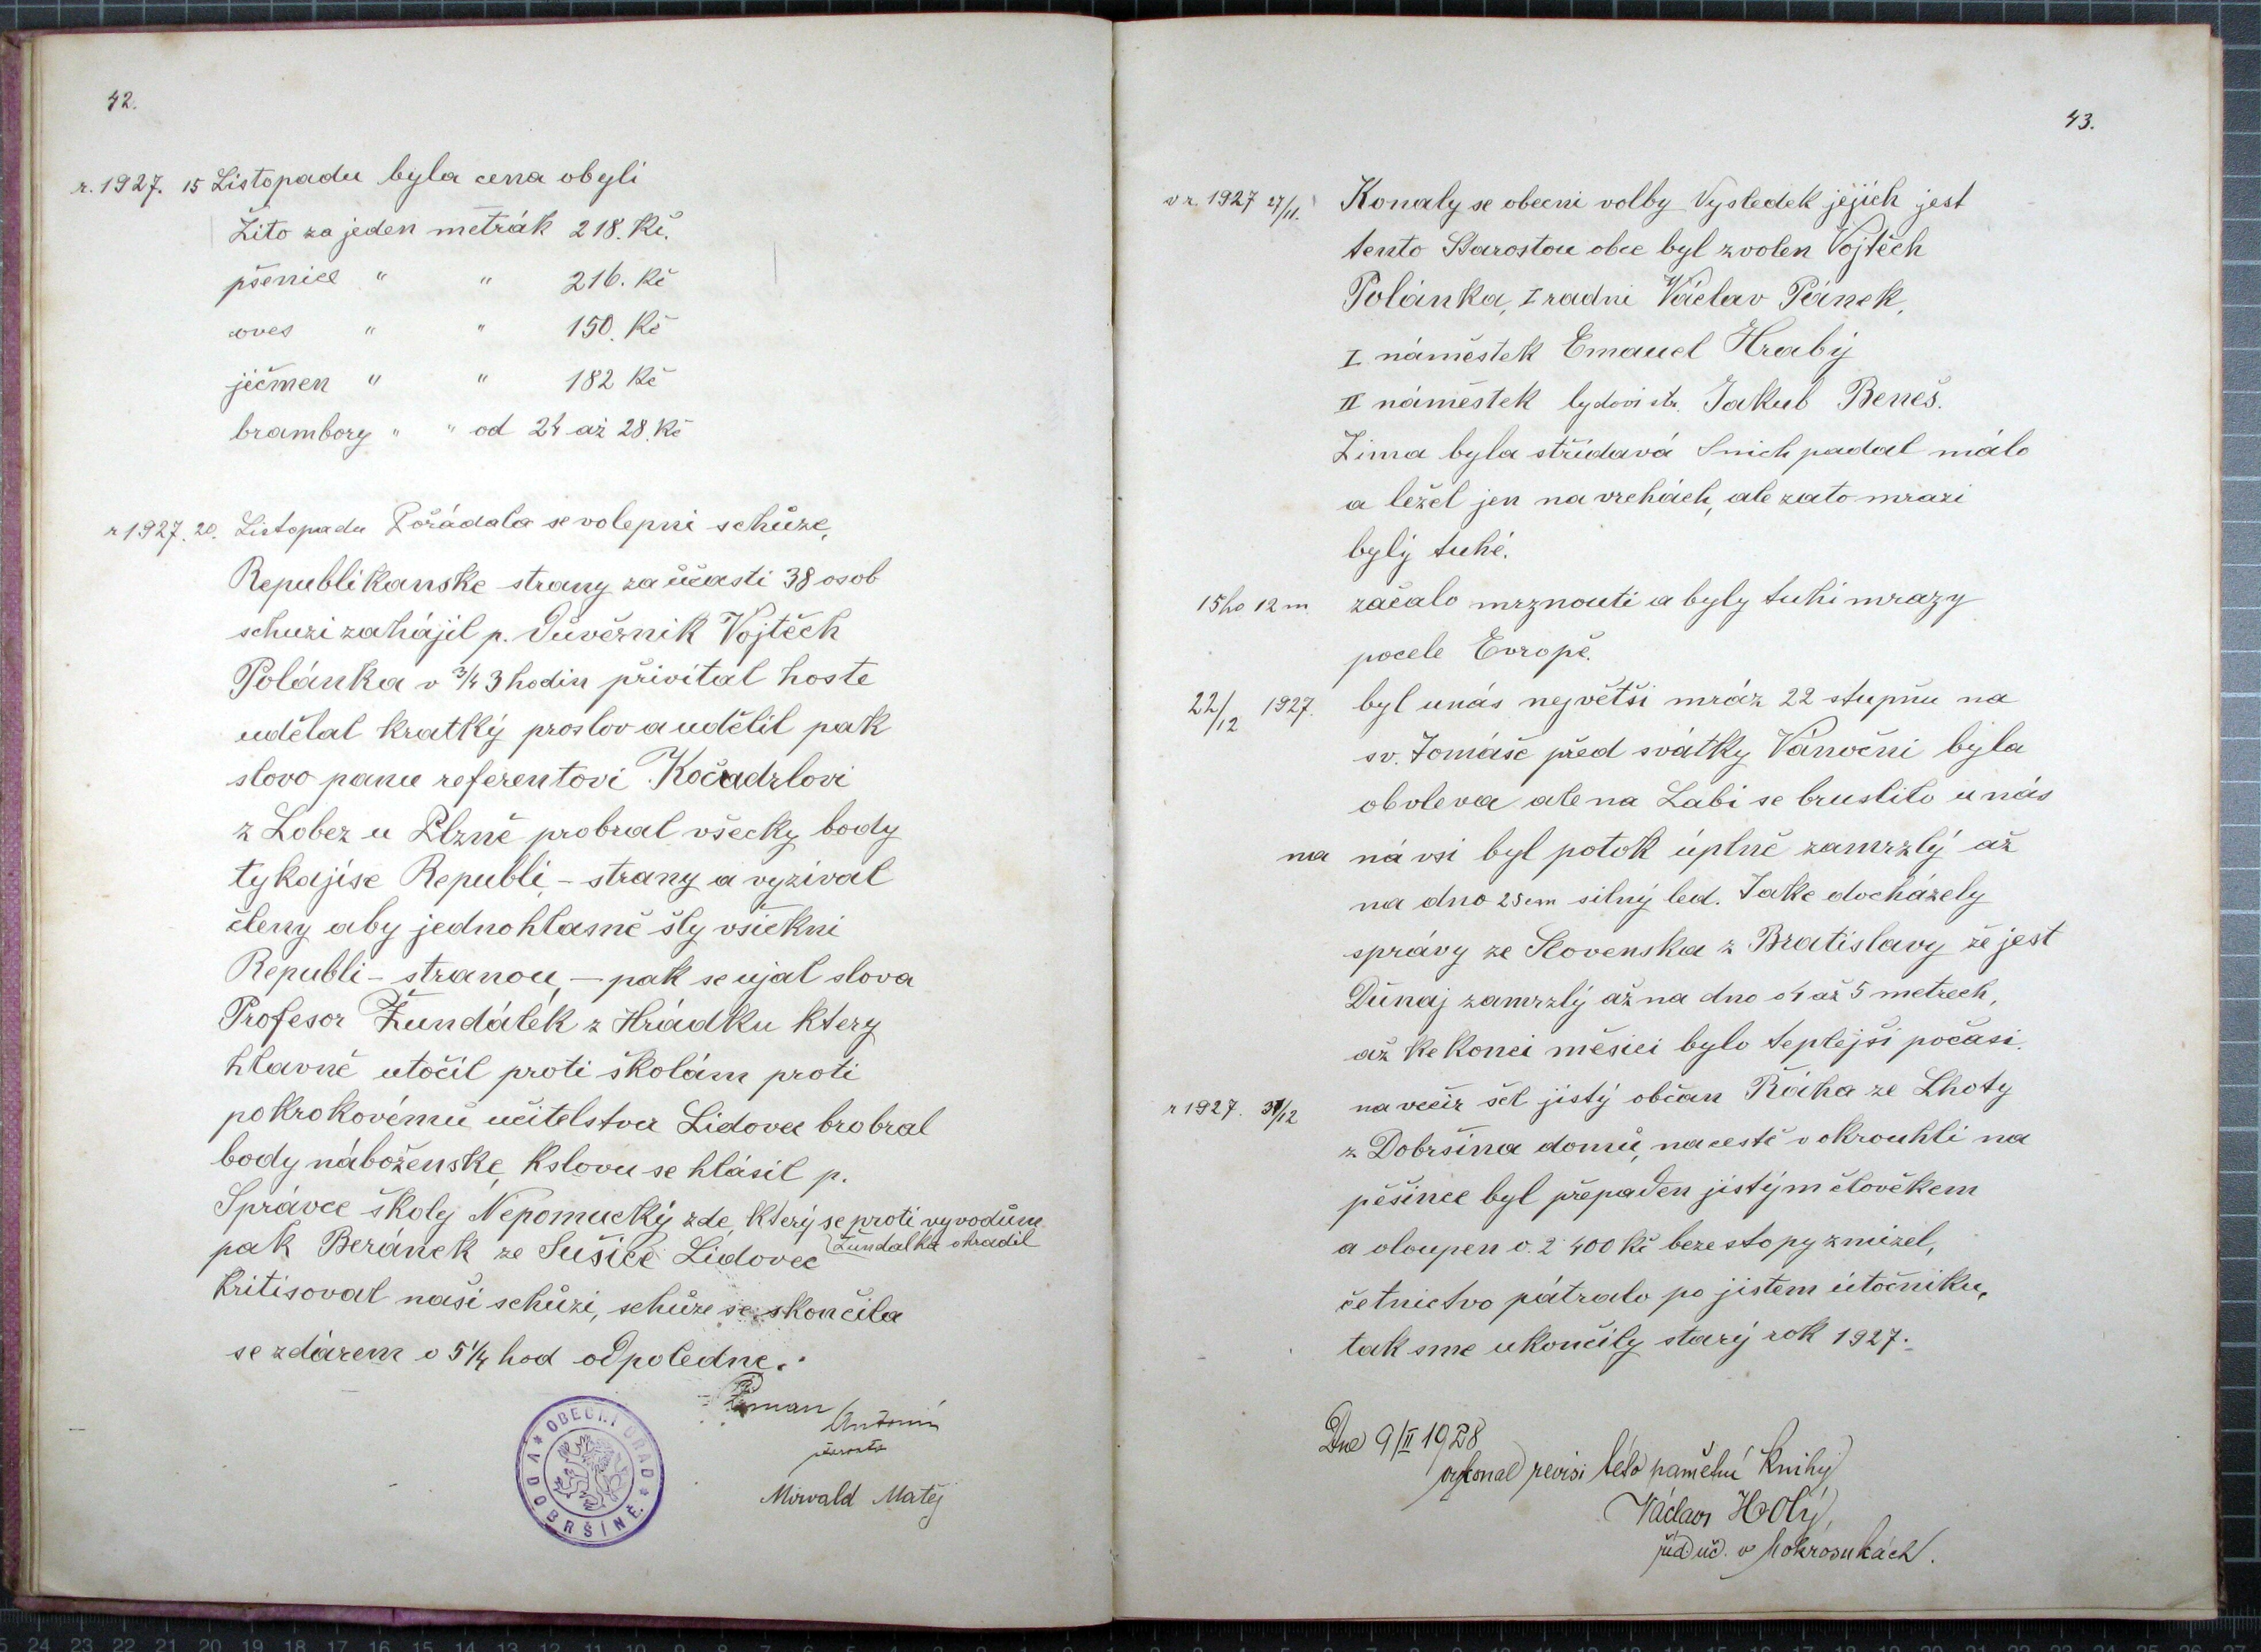 42.
r. 1927. 15 Listopadu byla cena obyli
Žito za jeden metrák 218. Kč.
pšenice " " 216. Kč
oves " " 150. Kč
ječmen " " 182 Kč
brambory " " od 24 až 28. Kč
r 1927. 20. Listopadu Pořádala se volepni schůze,
Republikanske strany za účasti 38 osob
schuzi zahájil p. Důvěrnik Vojtěch
Polánka v 3/4 3 hodin přivital hoste
udělal kratký proslov a udělil pak
slovo panu referentovi Kočadrlovi
z Lobez u Plzně probral všecky body
tykajíse Republi - strany a vyzival
členy aby jednohlasně šly všickni
Republi - stranou, - pak se ujal slova
Profesor Žundálek z Hrádku ktery
hlavně utočil proti školám proti
pokrokovému učitelstvu Lidovu brobral
body náboženske, k slovu se hlásil p.
Správce školy Nepomucký zde, který se proti vyvodům
Žundalka ohradil
pak Beránek ze Sušice Lidovec
kritisoval naši schůzi, schůze se skončila
se zdárem o 5 1/4 hod odpoledne.
Antonín
starosta
Mirvald Matěj
OBECNÍ ÚŘAD DOBRŠÍNĚ
43.
v r. 1927 27/11. Konaly se obecni volby Vysledek jějich jest
tento Starostou obce byl zvolen Vojtěch
Polánka, I radni Václav Pánek,
I náměstek Emanuel Hrabý
II náměstek lydovi str. Jakub Beneš.
Zima byla střídavá Snich padal málo
a ležel jen na vrchách, ale zato mrazi
bylý tuhé.
15ho 12 m. začalo mrznouti a byly tuhi mrazy
pocele Evropě.
22/12 1927. byl unás největši mráz 22 stupňu na
sv. Tomáše před svátky Vánočni byla
obleva ale na Labi se bruslilo u nás
na ná vsi byl potok úplně zamrzlý až
na dno 25 cm silný led. Take docházely
správy ze Slovenska z Bratislavy že jest
Dunaj zamrzlý až na dno o 4 až 5 metrech,
až ke konci měsici bylo teplejši počasi.
r 1927. 31/12 na večir šel jistý občan Řáha ze Lhoty
z Dobršina domů, na cestě v okrouhli na
pěšince byl přepaden jistým člověkem
a oloupen o 2 400 Kč beze stopy zmizel,
četnictvo pátralo po jistem útočniku,
tak sme ukončily starý rok 1927.
Dne 9/II 1928
vykonal revisi této pamětní knihy
Václav Holý,
říd uč. v Mokrosukách.